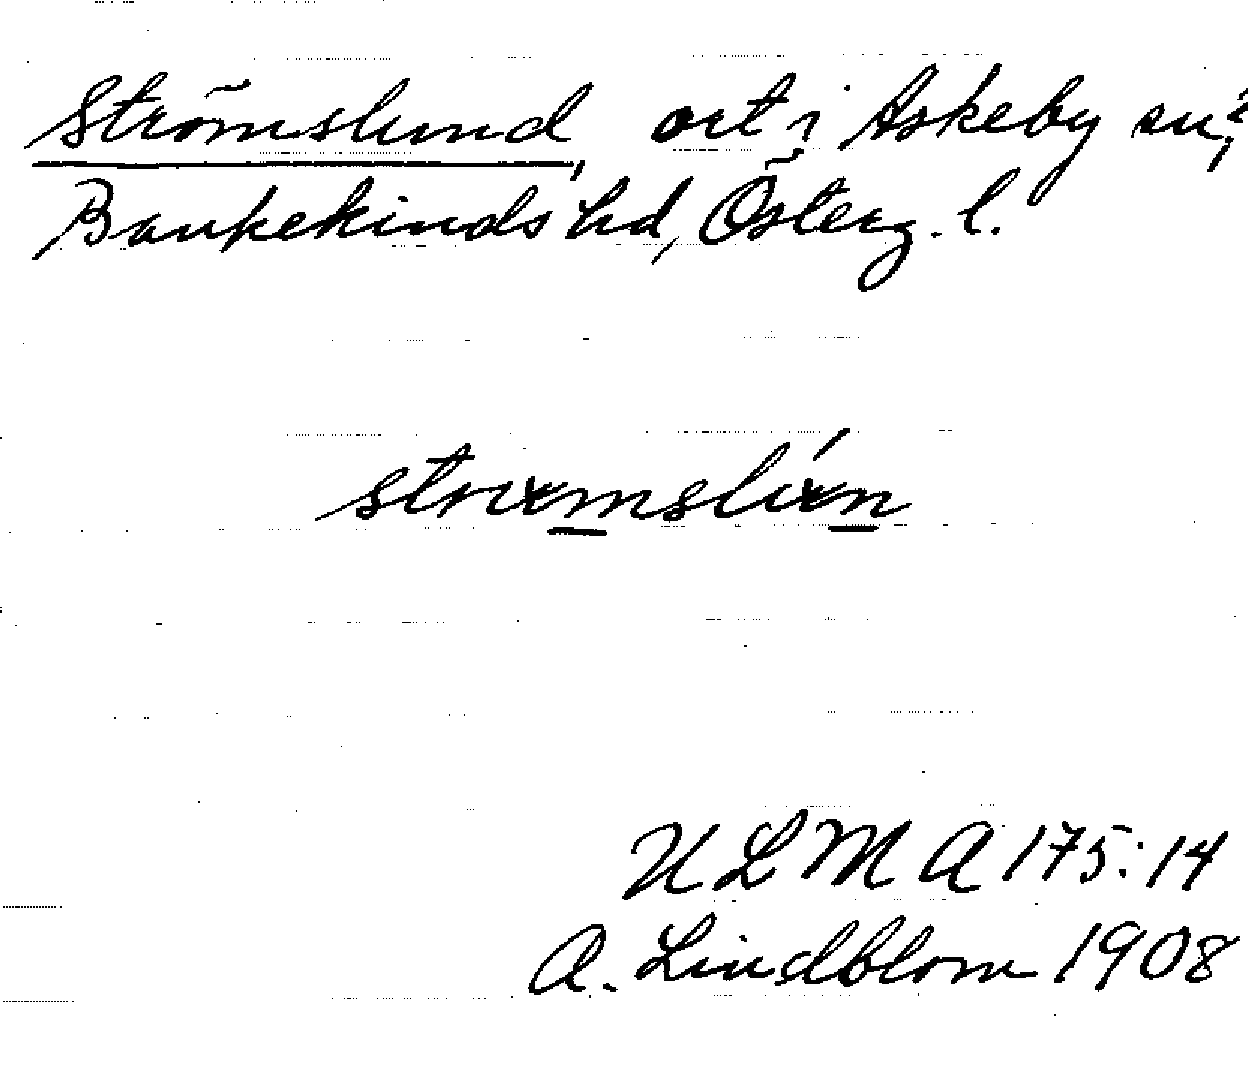 Strömslund, ort i Askeby sn?,
Bankekinds hd, Österg. l.
ULMA 175:14
A. Lindblom 1908